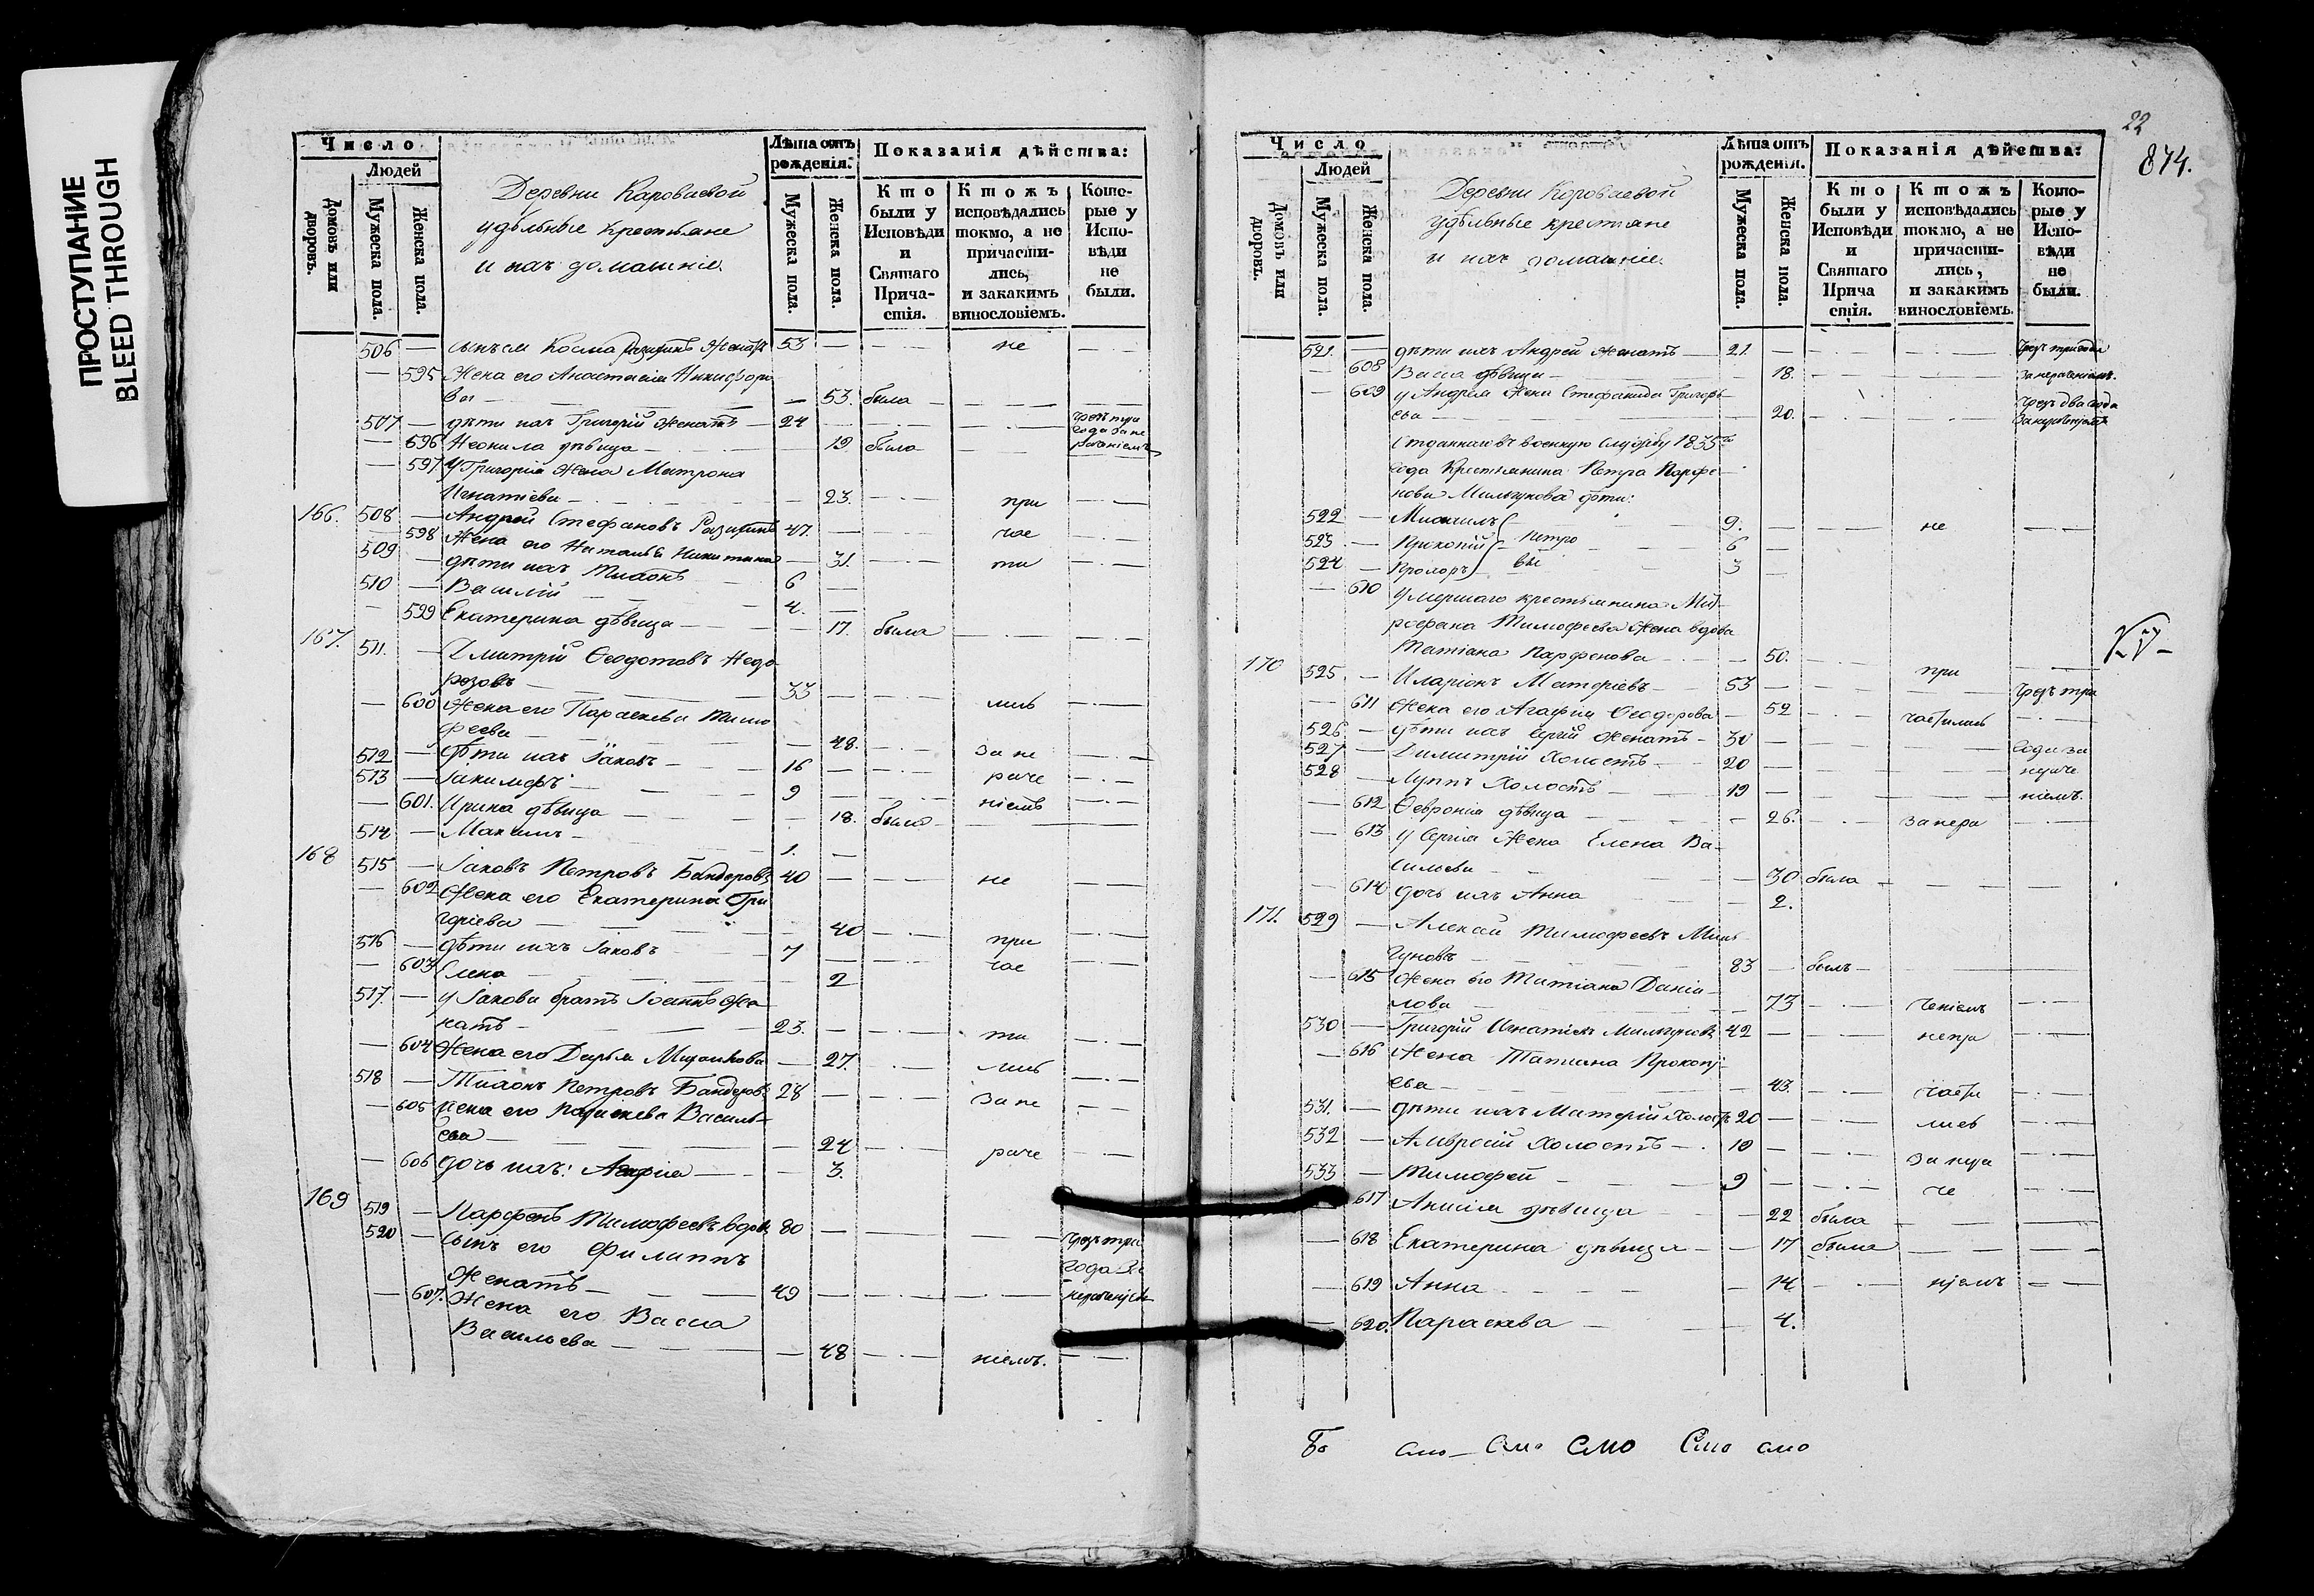 ПРОСТУПАНИЕ
BLEED THROUGH
Число
Людей
Домовъ или дворовъ.
Мужеска пола.
Женска пола.
Деревни Короваевой
удѣльные крестьяне
и ихъ домашніе.
Лѣта отъ рожденія.
Мужеска пола.
Женска пола.
Показанія дѣйства:
Кто были у Исповѣди и Святаго Причастія.
Ктожъ исповѣдались токмо, а не причастились, и закакимъ винословіемъ.
Которые у Исповѣди не были.
506 — сынъ ея Косма женатъ 53 — не
— 595 Жена его Анастасія Никифоро
ва — 53. была
507 — дѣти ихъ Григорій женатъ — 24 чрезъ три года за не раченіемъ
— 596 Неонила дѣвица — 19 была
— 597 У Григорія жена Матрона
Игнатіева — 23. при
166. 508 — Андрей Стефановъ 47. час
598 Жена его Наталья Никитина — 31. ти
509 — дѣти ихъ Тихонъ 6
510 — Василій 4.
— 599 Екатерина дѣвица — 17. была
167. 511. — Димитрій Ѳеодотовъ Недо
розовъ — 33
— 600 Жена его Параскева Тимо
феева — 48. лись
512 — дѣти ихъ Іаковъ — 16 за не
513 — Іакимфъ 9 раче
— 601. Ирина дѣвица — 18. была ніемъ
514 — Максимъ 1.
168 515 — Іаковъ Петровъ Бандеровъ 40 не
— 602 Жена его Екатерина Гри
горіева — 40 при
516 — дѣти ихъ Іаковъ 7 час
— 603 Елена 2
517. — у Іакова братъ Іоаннъ же
натъ — 23. ти
— 604 Жена его Дарья Михайлова — 27. лись
518 — Тихонъ Петровъ Бандеровъ 28 за не
— 605 жена его Параскева Василь-
ева — 24 раче
— 606 дочь ихъ: Агафіа — 3.
169 519 — Парфенъ Тимофеевъ вдовъ 80
520 — сынъ его Филиппъ чрезъ три года за
женатъ — 49 нераченіемъ
— 607. Жена его Васса
Васильева — 48 ніемъ.
22
874.
Число
Людей
Домовъ или дворовъ.
Мужеска пола.
Женска пола.
Деревни Короваевой
удѣльные крестяне
и ихъ домашніе.
Лѣта отъ рожденія.
Мужеска пола.
Женска пола.
Показанія дѣйства:
Кто были у Исповѣди и Святаго Прича стія.
Ктожъ исповѣдались токмо, а не причастились, и закакимъ винословіемъ.
Которые у Исповѣди не были.
521. — дѣти ихъ Андрей женатъ — 21. чрезъ три года
— 608 Васса дѣвица — 18. за нераченіемъ.
— 609 у Андрея жена Стефанида Григорь
ева — 20. чрезъ два года за нераченіемъ
Отданнаго въ военную службу 1835го
года Крестьянина Петра Парфе
нова Мильгунова дѣти:
522 — Михаилъ 9. не
523 — Прокопій Петро 6
524 — Прохоръ вы 3
— 610 умершаго крестьянина Мит
рофана Тимофеева жена вдова
Татіана Парфенова — 50. при
170 525 — Иларіонъ Матѳіевъ — 53 чрезъ три
— 611 Жена его Агафія Ѳеодорова — 52 частились
526 — дѣти ихъ Сергій женатъ — 30 года за
527 — Димитрій холостъ — 20 нераче
528 — Луппъ холостъ — 19 ніемъ.
— 612 Ѳевронія дѣвица — 26. за нера
— 613 у Сергія жена Елена Ва-
сильева — 30 была
— 614 дочь ихъ Анна — 2.
171. 529 — Алексій Тимофеевъ Миль
гуновъ — 83 — былъ —
— 615 Жена его Татіана Даніи-
лова — 73 ченіемъ
530 — Григорій Игнатіевъ Мильгуновъ 42 непри
— 616 Жена Татиана Прокопі-
ева — 43. части
531. — дѣти ихъ Матѳій холостъ 20 лись
532 — Амвросій холостъ — 19 за нера
533 — Тимофей 9 че
617 Анисія дѣвица 22 была
— 618 Екатерина дѣвица — 17 была
— 619 Анна 14 ніемъ
— 620. Параскева 4.
сто сто сто сто сто